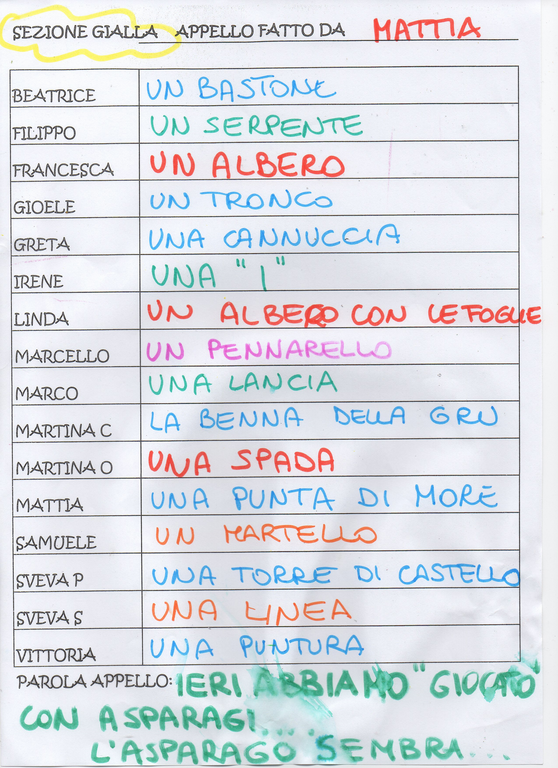 SEZIONE GIALLA APPELLO FATTO DA MATTIA
BEATRICE UN BASTONE
FILIPPO UN SERPENTE
FRANCESCA UN ALBERO
GIOELE UN TRONCO
GRETA UNA CANNUCCIA
IRENE UNA "I"
LINDA UN ALBERO CON LE FOGLIE
MARCELLO UN PENNARELLO
MARCO UNA LANCIA
MARTINA C LA BENNA DELLA GRU
MARTINA O UNA SPADA
MATTIA UNA PUNTA DI MORE
SAMUELE UN MARTELLO
SVEVA P UNA TORRE DI CASTELLO
SVEVA S UNA LINEA
VITTORIA UNA PUNTURA
PAROLA APPELLO: IERI ABBIAMO "GIOCATO"
CON ASPARAGI...
L'ASPARAGO SEMBRA...